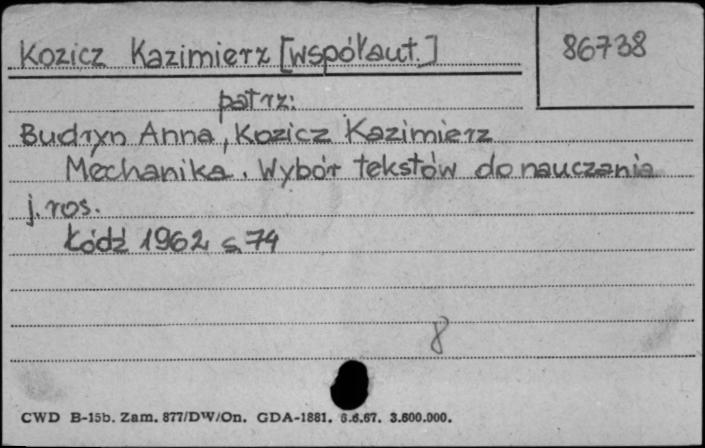 Kozicz Kazimierz [współaut.]
86738
patrz:
Budryn Anna, Kozicz Kazimierz
Mechanika. Wybór tekstów do nauczania
j. ros.
Łódź 1962 s. 74
8
CWD B-15b. Zam. 877/DW/On. GDA-1881. 6.6.67. 3.600.000.